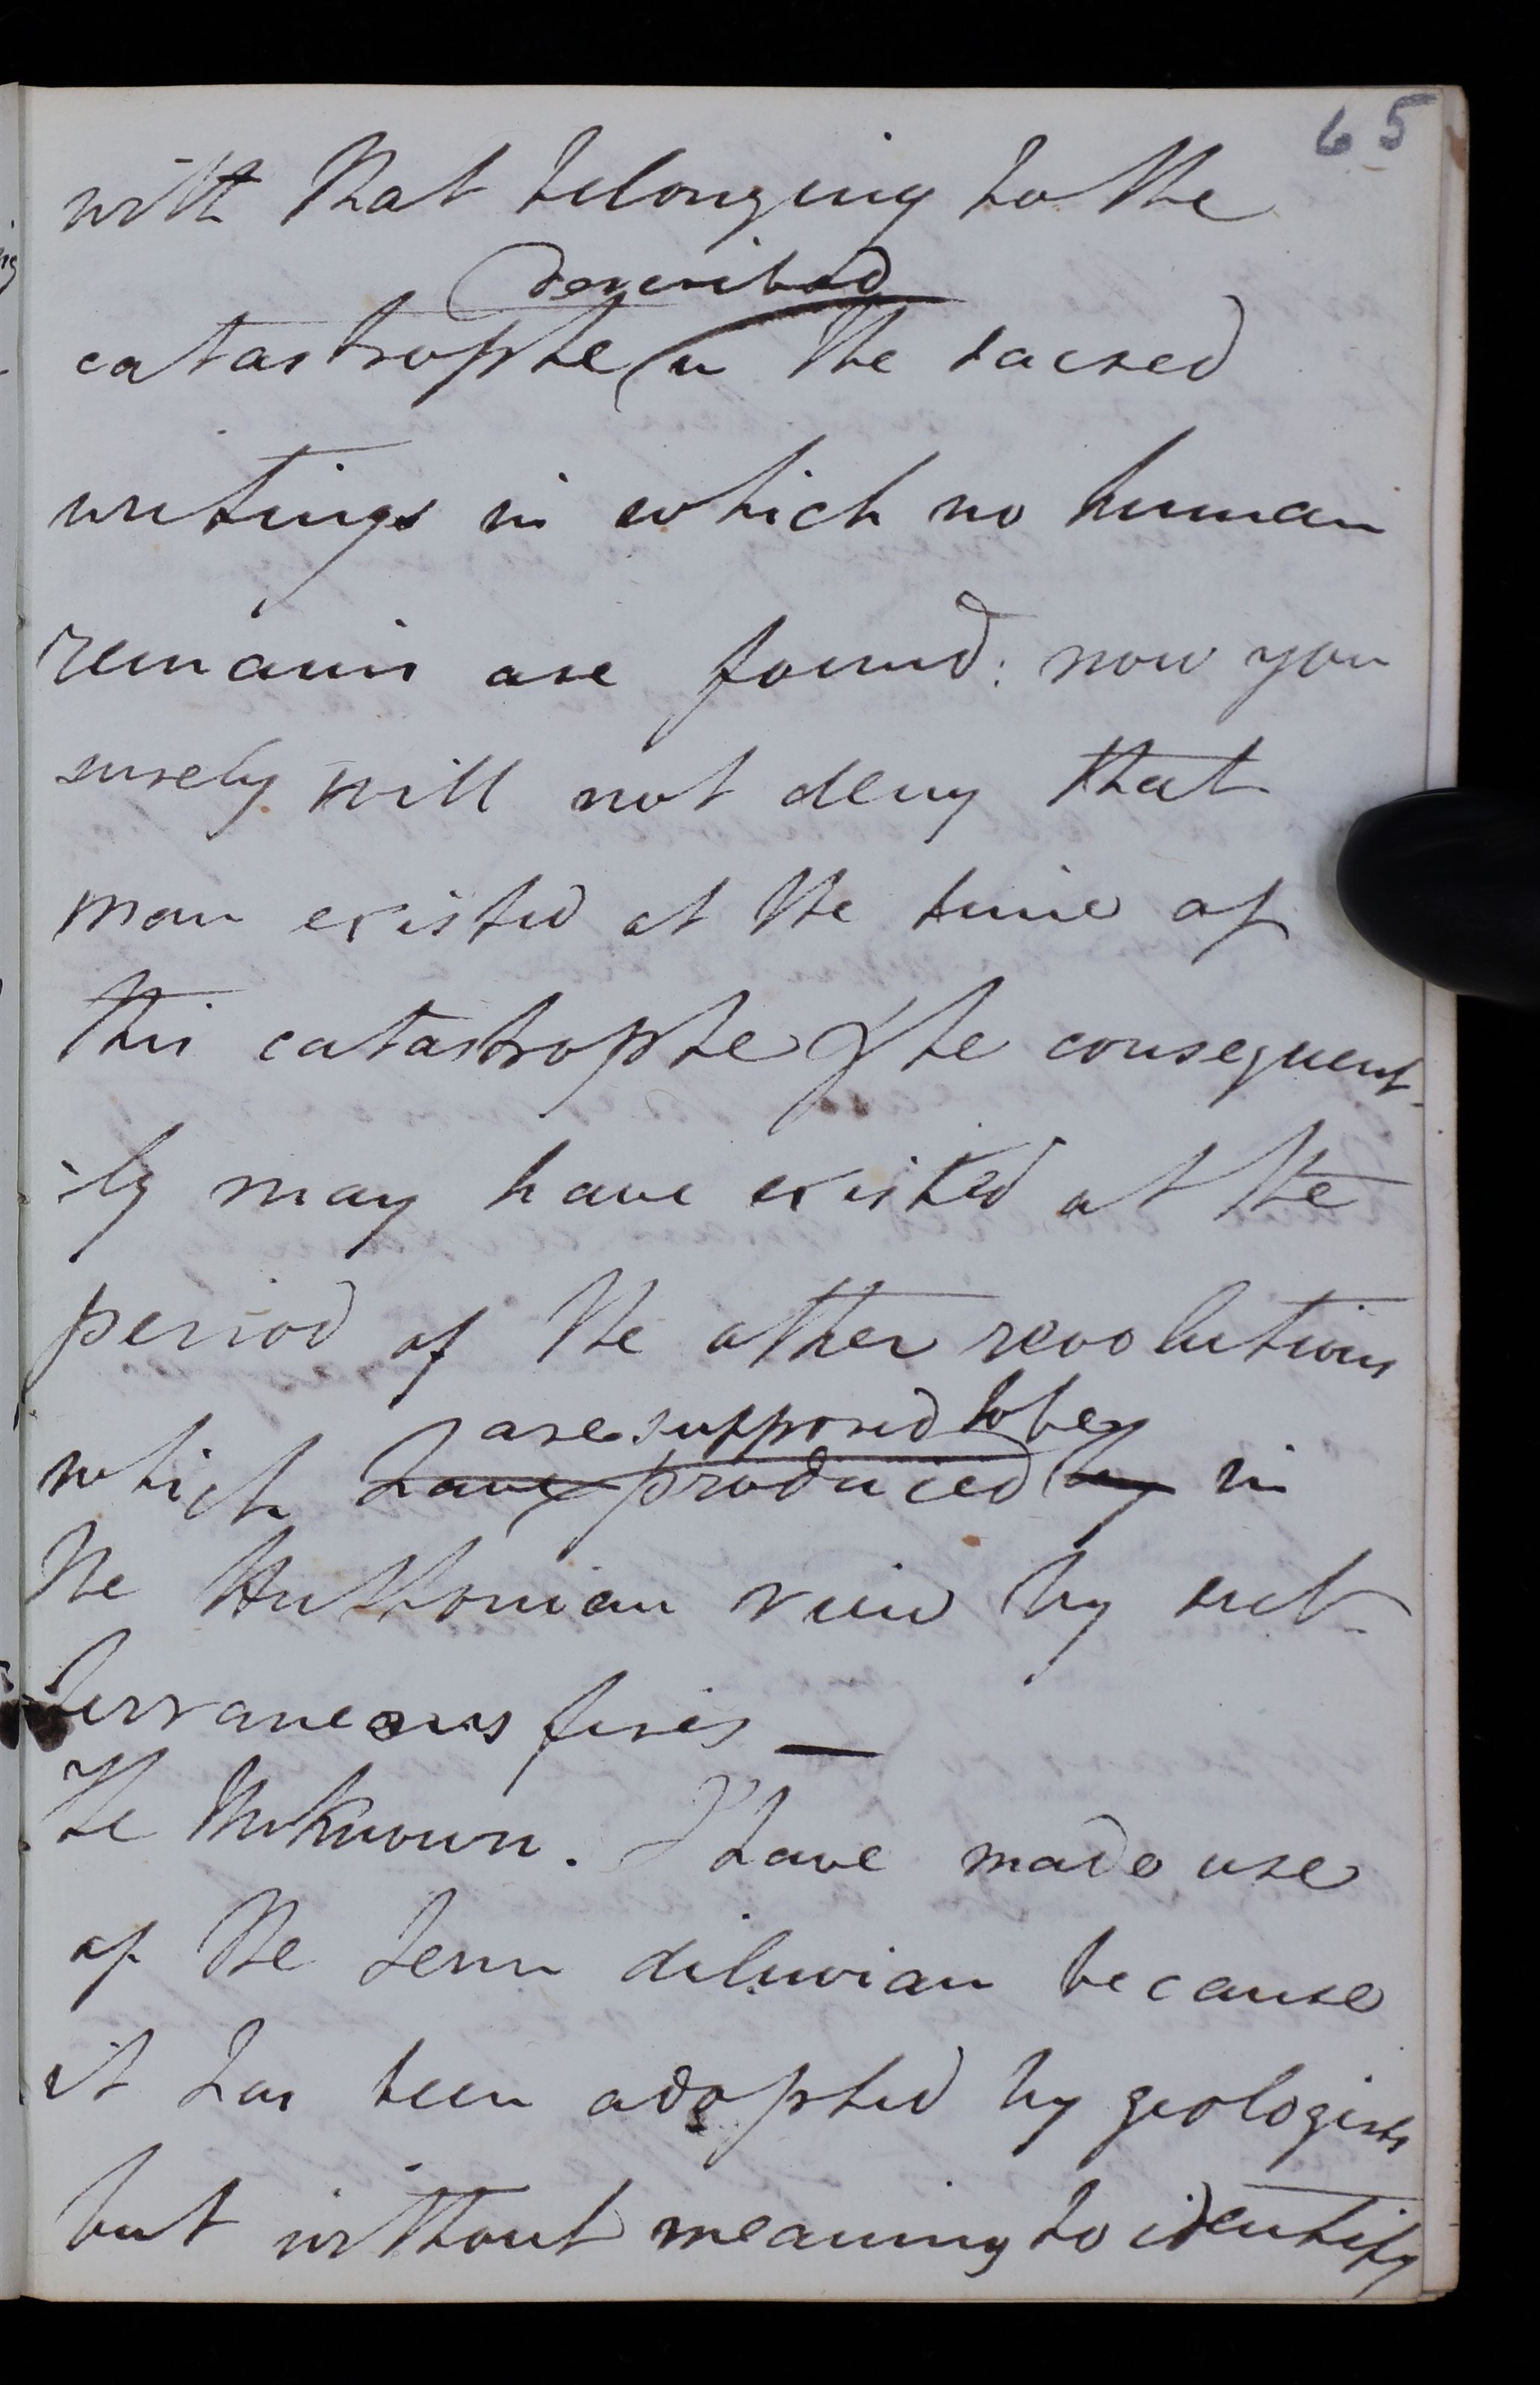 65
with that belonging to the
described
catastrophe in the sacred
writings in which no human
remains are found: now you
surely will not deny that
man existed at the time of
this catastrophe & he consequent-
-ly may have existed at the
period of the other revolutions
are supposed to be
which have produced by in
the Huttonian view by sub-
terraneous fires —
The Unknown. I have made use
of the term diluvian because
it has been adopted by geologists
but without meaning to identify